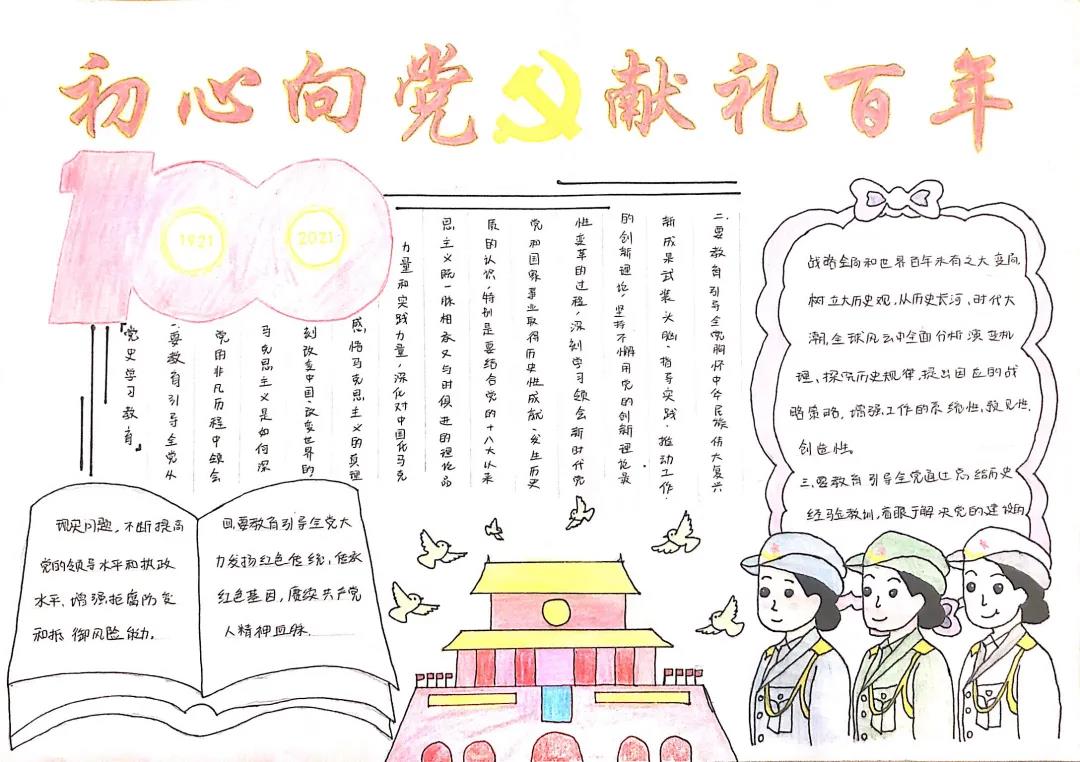 初心向党献礼百年
100
1921
2021
『党史学习教育』
一要教育引导全党从
党的非凡历程中领会
马克思主义是如何深
刻改变中国、改变世界的
感悟马克思主义的真理
力量和实践力量,深化对中国化马克
思主义既一脉相承又与时俱进的理论品
质的认识,特别是要结合党的十八大以来
党和国家事业取得历史性成就、发生历史
性变革的过程,深刻学习领会新时代党
的创新理论,坚持不懈用党的创新理论最
新成果武装头脑、指导实践、推动工作.
二.要教育引导全党胸怀中华民族伟大复兴
战略全局和世界百年未有之大变局.
树立大历史观,从历史长河、时代大
潮,全球风云中全面分析演变机
理、探究历史规律,提出因应的战
略策略,增强工作的系统性,预见性.
创造性。
三.要教育引导全党通过总结历史
经验教训,着眼于解决党的建设的
现实问题,不断提高
党的领导水平和执政
水平、增强拒腐防变
和抵御风险能力.
四.要教育引导全党大
力发扬红色传统,传承
红色基因,赓续共产党
人精神血脉.